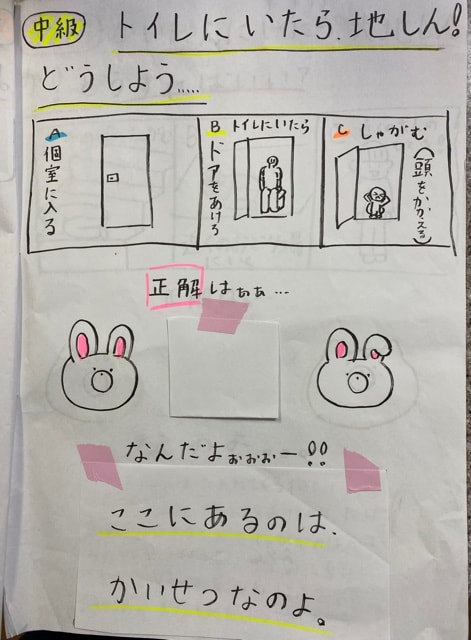 中級 トイレにいたら、地しん!
どうしよう.....
A 個室に入る
B トイレにいたらドアをあけろ
C しゃがむ(頭をかかえる)
正解はぁぁ...
なんだよぉぉぉー!!
ここにあるのは、
かいせつなのよ。